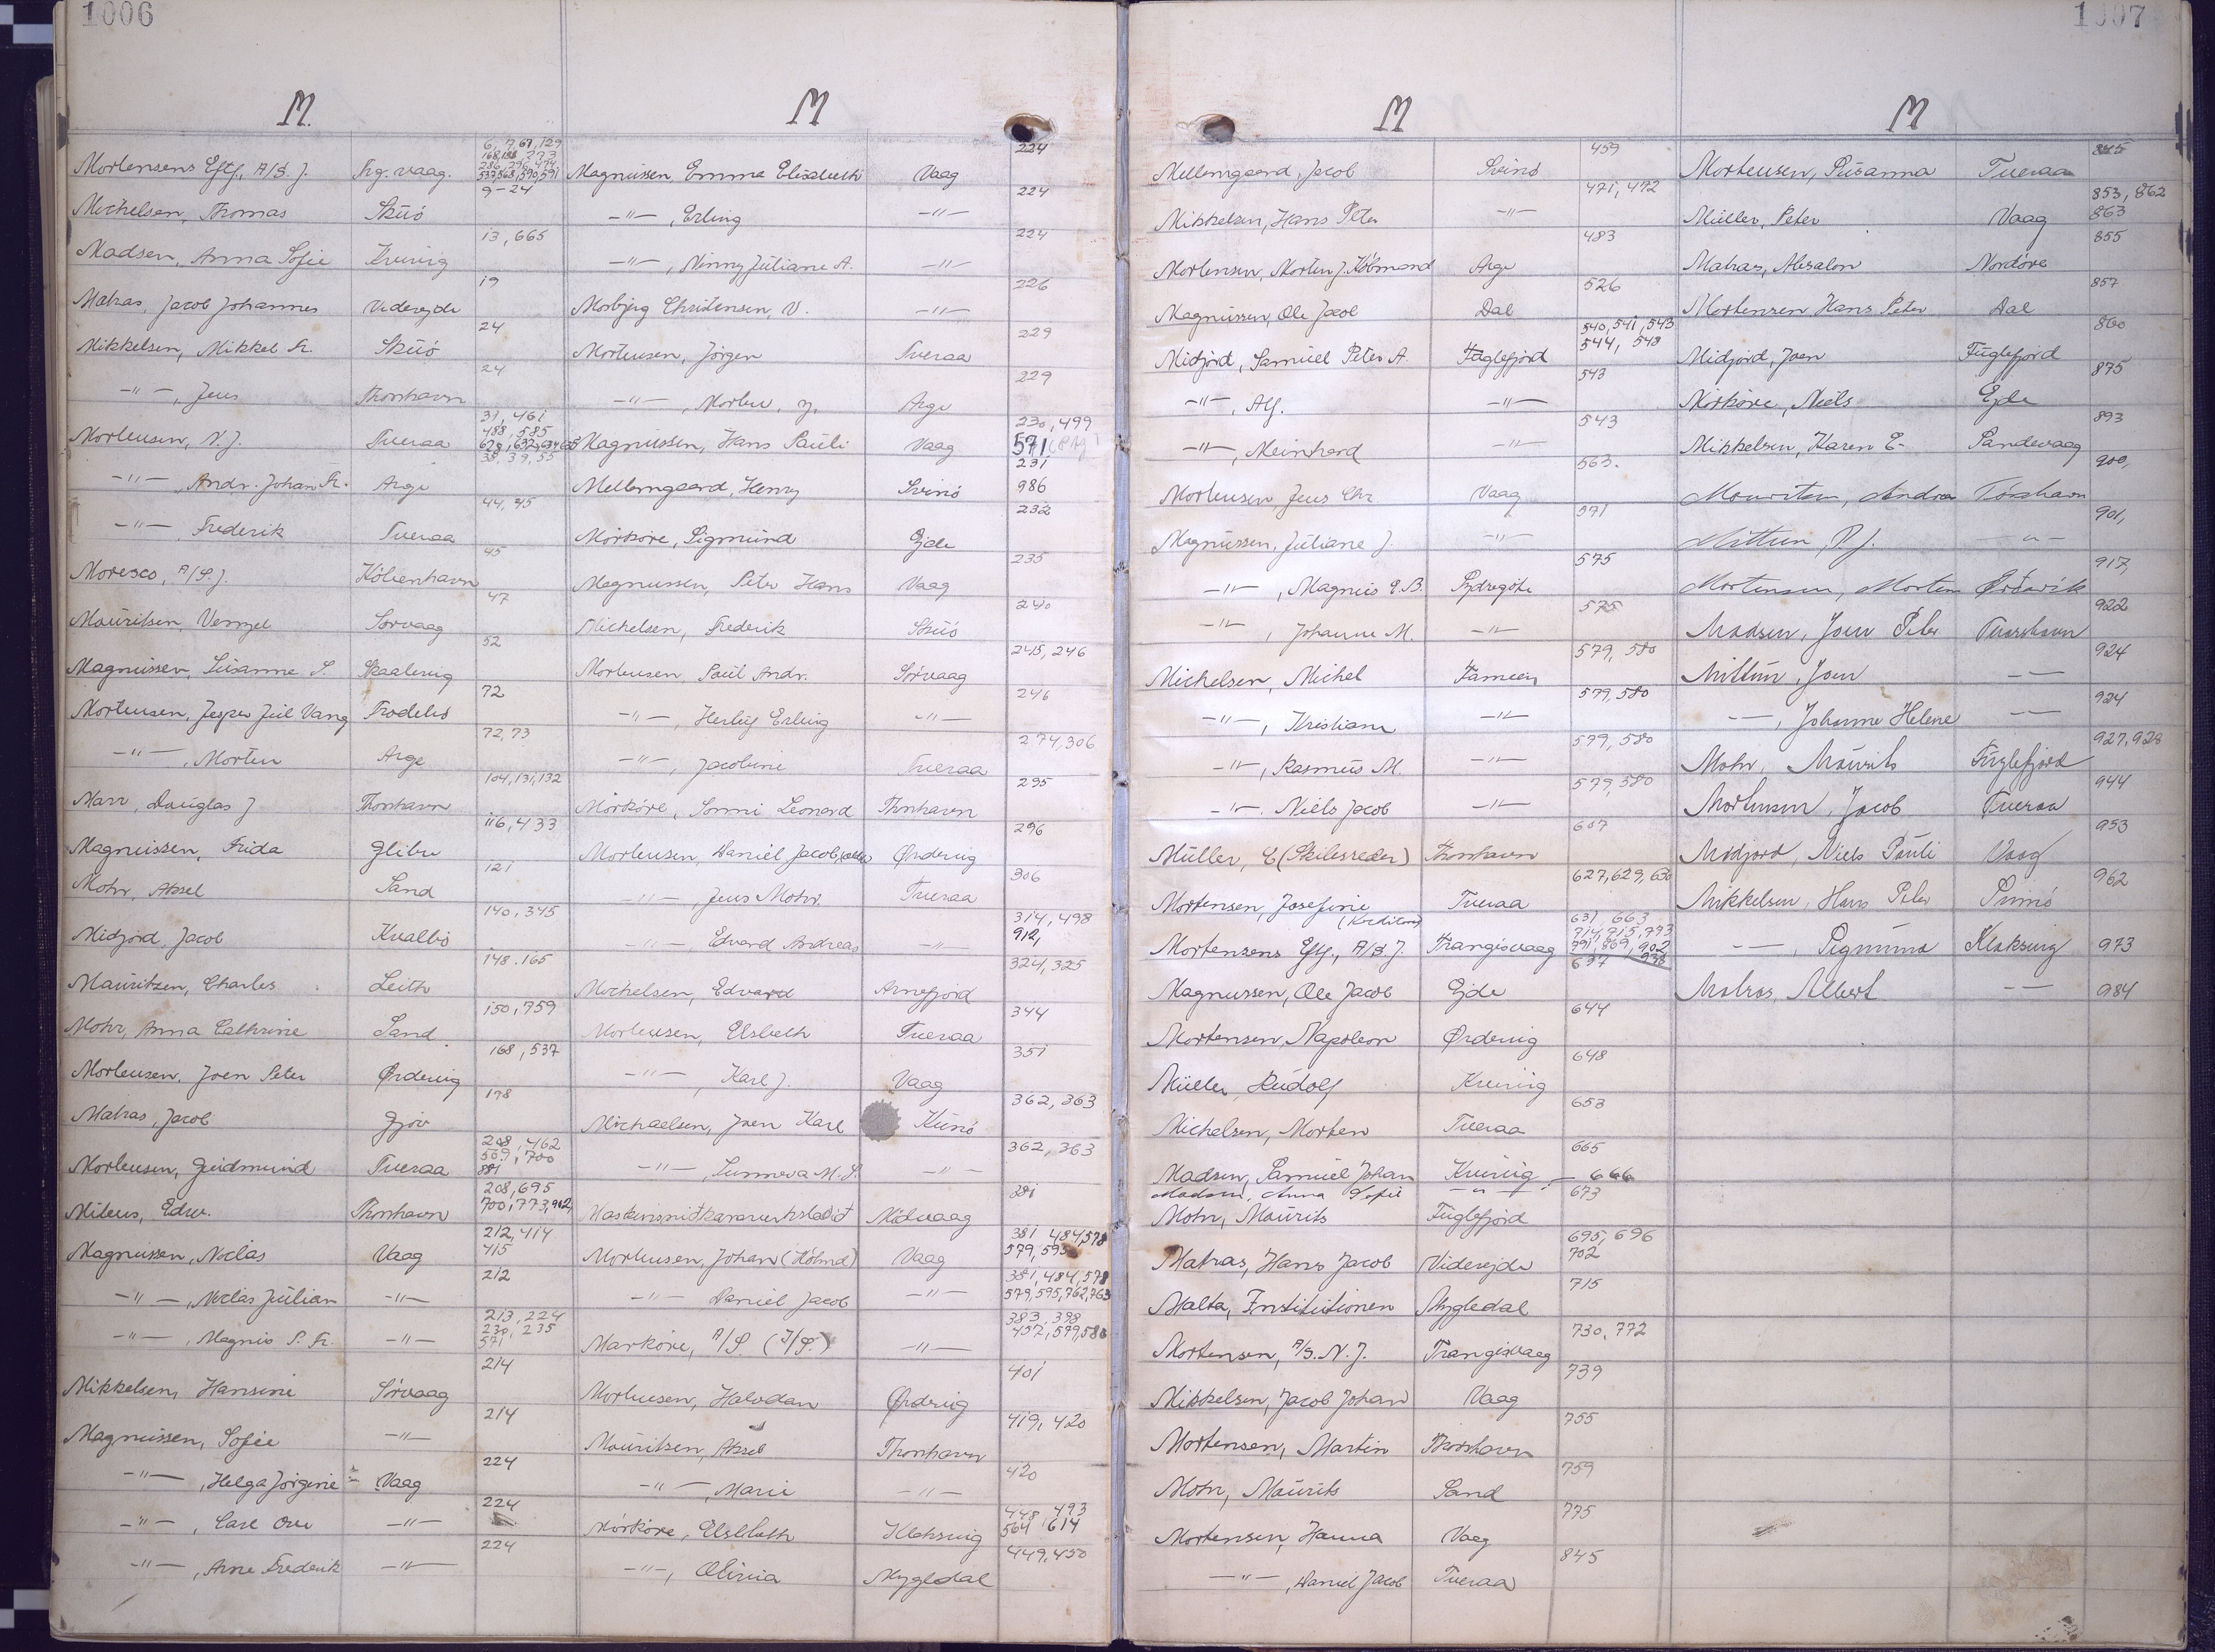 1006
M.
Mortensens Eftf, A/S. J. Trg. vaag. 6, 7, 67, 129 168, 188, 273 286, 296, 474 537, 568, 590, 591
Michelsen, Thomas Skúö 9-24
Madsen, Anna Sofie Kvivig 13, 665
Matras, Jacob Johannes Viderejde 19
Mikkelsen, Mikkel Fr. Skúö 24
-"-, Jens Thorshavn 24
Mortensen, N. J. Tveraa 31, 461 488, 585 628, 632, 634
-"-, Andr. Johan Fr. Arge 38, 39, 55
-"- Frederik Tveraa 44, 45
Moresco, A/S. J. Köbenhavn 45
Mauritsen, Vensel Sørvaag 47
Magnussen, Susanne S. Skaalevig 52
Mortensen, Jesper Juil Vang Frodebö 72
-"-, Morten Arge 72, 73
Marr, Douglas J Thorshavn 104, 131, 132
Magnussen, Frida Glibre 116, 433
Mohr, Aksel Sand 121
Midjord, Jacob Kvalbö 140, 345
Mauritzen, Charles Leith 148. 165
Mohr, Anna Cathrine Sand 150, 759
Mortensen, Joen Peter Ørdevig 168, 537
Matras, Jacob Gjov 198
Mortensen, Gudmund Tveraa 208, 462 569, 700 881
Mitens, Edw. Thorshavn 208, 695 700, 773, 902
Magnussen, Noclas Vaag 212, 414 415
-"-, Noclas Julian -"- 212
-"-, Magnus P. Fr. -"- 213, 224 230, 235 571
Mikkelsen, Hansine Sörvaag 214
Magnussen, Sofie -"- 214
-"-, Helga Jörgine Vaag 224
-"-, Carl Ove -"- 224
-"-, Arne Frederik -"- 224
M
Magnussen, Emma Elisabeth Vaag 224
-"-, Erling -"- 224
-"-, Ninny Juliane A. -"- 224
Morbjerg Christensen, V. -"- 226
Mortensen, Jörgen Tveraa 229
-"-, Morten, y. Arge 229
Magnussen, Hans Pauli Vaag 230, 499 571
Mellemgaard, Henry Svinö 231 986
Mörköre, Sigmund Ejde 232
Magnussen, Peter Hans Vaag 235
Michelsen, Frederik Skúö 240
Mortensen, Paul Andr. Sörvaag 245, 246
-"-, Herluf Erling -"- 246
-"-, Jacobine Tveraa 274, 306
Mörköre, Sonni Leonard Thorshavn 295
Mortensen, Daniel Jacob, Ørdevig 296
-"-, Jens Mohr Tveraa 306
-"-, Edvard Andreas -"- 314, 498 912,
Michelsen, Edvard Arnefjord 324, 325
Mortensen, Elsbeth Tveraa 344
-"-, Karl J. Vaag 351
Michaelsen, Joen Karl Kunö 362, 363
-"-, Sunneva M. S. -"- 362, 363
Maskinsnidkaraverkstadið Midvaag 381
Mortensen, Johan (Köbmd) Vaag 381 484, 578 579, 595
-"- Daniel Jacob -"- 381, 484, 578 579, 595, 762, 763
Marköre, A/S (I/S.) -"- 383, 398 457, 579, 580
Mortensen, Halvdan Ørdevig 401
Mauritsen, Aksel Thorshavn 419, 420
-"-, Marie -"- 420
Mörköre, Elsebeth Klaksvig 448, 493 564 614
-"-, Olivia Mygledal 449, 450
1007
M
Mellemgaard, Jacob Svinö 459
Mikkelsen, Hans Peter -"- 471, 472
Mortensen, Morten J. Köbmand Arge 483
Magnussen, Ole Jacob Dal 526
Midjord, Samuel Peter A Fuglefjord 540, 541, 543 544, 548
-"-, Alf. -"- 543
-"-, Meinhard -"- 543
Mortensen Jens Chr Vaag 563.
Magnussen, Juliane J. -"- 571
-"-, Magnus E. B. Sydregöte 575
-"-, Johanne M. -"- 575
Michelsen, Michel Famien 579, 580
-"-, Kristiane -"- 579, 580
-"-, Rasmus M. -"- 579, 580
-"-. Niels Jacob -"- 579, 580
Müller, E (Skibsreder) Thorshavn 607
Mortensen, Josefine Tveraa 627, 629, 630
Mortensens Eftf., A/S. J. Trangisvaag 631, 663 714, 715, 773 791, 869, 902 938
Magnussen, Ole Jacob Ejde 637
Mortensen, Napoleon Ørdevig 644
Müller, Rudolf Kvivig 648
Michelsen, Morten Tveraa 653
Madsen, Samuel Johan Kvivig 665
Madsen, Anna Sofie -"- - 666
Mohr, Maurits Fuglefjord 673
Matras, Hans Jacob Viderejde 695, 696 702
Malta, Institutionen Mygledal 715
Mortensen, A/S. N. J. Trangisvaag 730, 772
Mikkelsen, Jacob Johan Vaag 739
Mortensen, Martin Thorshavn 755
Mohr, Maurits Sand 759
Mortensen, Hanna Vaag 775
-"-, Daniel Jacob Tveraa 845
M
Mortensen, Susanna Tveraa 845
Müller, Peter Vaag 853, 862 863
Matras, Absalon Nordöre 855
Mortensen Hans Peter Dal 857
Midjord, Joen Fuglefjord 860
Mörköre, Niels Ejde 875
Mikkelsen, Karen E- Sandevaag 893
Mouritsen, Andrea Tórshavn 900,
Mittun, P. J. -"- 901,
Mortensen, Morten Ørðavík 917,
Madsen, Joen Peter Thorshavn 922
Mittún, Joen -- 924
--, Johanne Helene -- 924
Mohr, Maurits Fuglefjord 927, 928
Mortensen, Jacob Tveraa 944
Midjord, Niels Pauli Vaag 953
Mikkelsen, Hans Peter Svinö 962
--, Sigmund Klaksvig 973
Matras, Albert -- 984